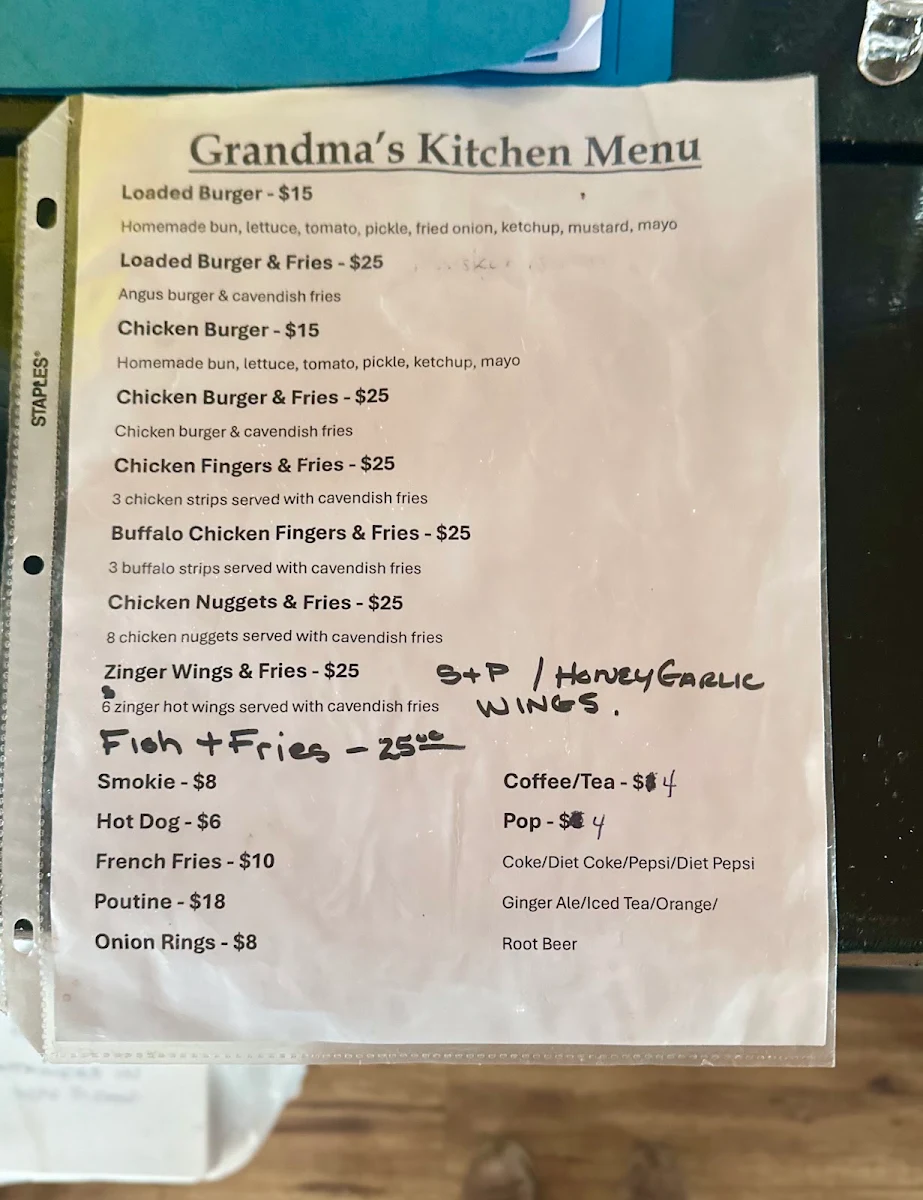 Grandma's Kitchen Menu
Loaded Burger - $15
Homemade bun, lettuce, tomato, pickle, fried onion, ketchup, mustard, mayo
Loaded Burger & Fries - $25
Angus burger & cavendish fries
Chicken Burger - $15
Homemade bun, lettuce, tomato, pickle, ketchup, mayo
Chicken Burger & Fries - $25
Chicken burger & cavendish fries
Chicken Fingers & Fries - $25
3 chicken strips served with cavendish fries
Buffalo Chicken Fingers & Fries - $25
3 buffalo strips served with cavendish fries
Chicken Nuggets & Fries - $25
8 chicken nuggets served with cavendish fries
Zinger Wings & Fries - $25
6 zinger hot wings served with cavendish fries
S+P / HONEY GARLIC
WINGS.
Fish + Fries - 25⁰⁰
Smokie - $8
Hot Dog - $6
French Fries - $10
Poutine - $18
Onion Rings - $8
Coffee/Tea - $ 4
Pop - $ 4
Coke/Diet Coke/Pepsi/Diet Pepsi
Ginger Ale/Iced Tea/Orange/
Root Beer
STAPLES®